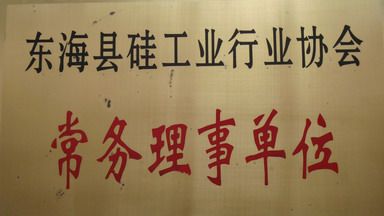 东海县硅工业行业协会
常务理事单位